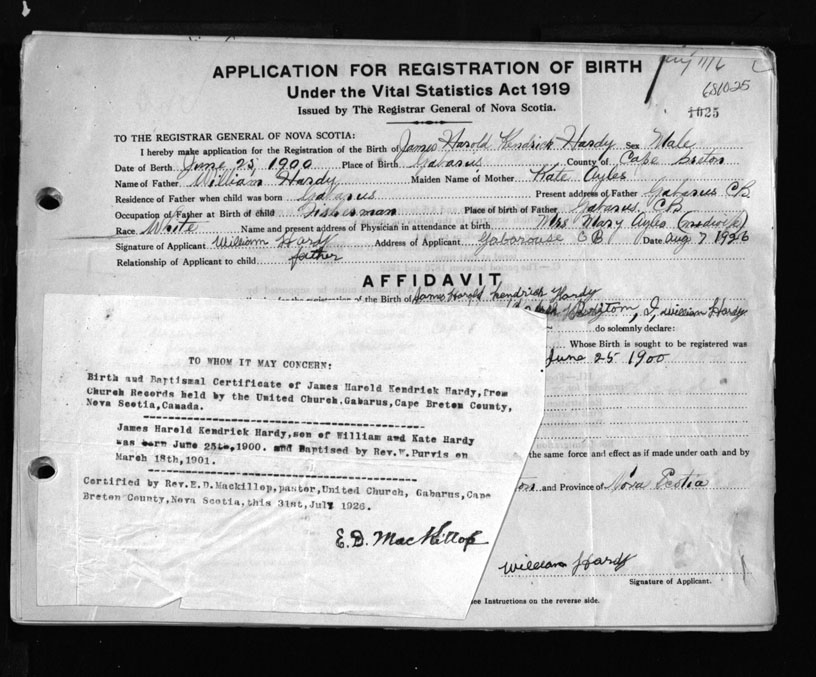 APPLICATION FOR REGISTRATION OF BIRTH
Under the Vital Statistics Act 1919
Issued by The Registrar General of Nova Scotia.
681025
1025
TO THE REGISTRAR GENERAL OF NOVA SCOTIA:
I hereby make application for the Registration of the Birth of James Harold Kendrick Hardy Sex Male
Date of Birth June 25 1900 Place of Birth Gabarus County of Cape Breton
Name of Father William Hardy Maiden Name of Mother Kate Ayles
Residence of Father when child was born Gabarus Present address of Father Gabarus C B
Occupation of Father at Birth of child Fisherman Place of birth of Father Gabarus, CB
Race White Name and present address of Physician in attendance at birth Mrs Mary Ayles (
Signature of Applicant William Hardy Address of Applicant Gabarouse C B Date Aug 7 1926
Relationship of Applicant to child father
AFFIDAVIT
for the registration of the Birth of James Harold Kendrick Hardy
I, William Hardy
do solemnly declare:
Whose Birth is sought to be registered was
June 25 1900
TO WHOM IT MAY CONCERN:
Birth and Baptismal Certificate of James Harold Kendrick Hardy, from
Church Records held by the United Church, Gabarus, Cape Breton County,
Nova Scotia, Canada.
James Harold Kendrick Hardy, son of William and Kate Hardy
was born June 25th, 1900. and Baptised by Rev. W. Purvis on
March 18th, 1901.
Certified by Rev. E. D. Mackillop, pastor, United Church, Gabarus, Cape
Breton County, Nova Scotia, this 31st, July 1926.
E. D. MacKillop
the same force and effect as if made under oath and by
ton and Province of Nova Scotia
William Hardy
Signature of Applicant.
see Instructions on the reverse side.